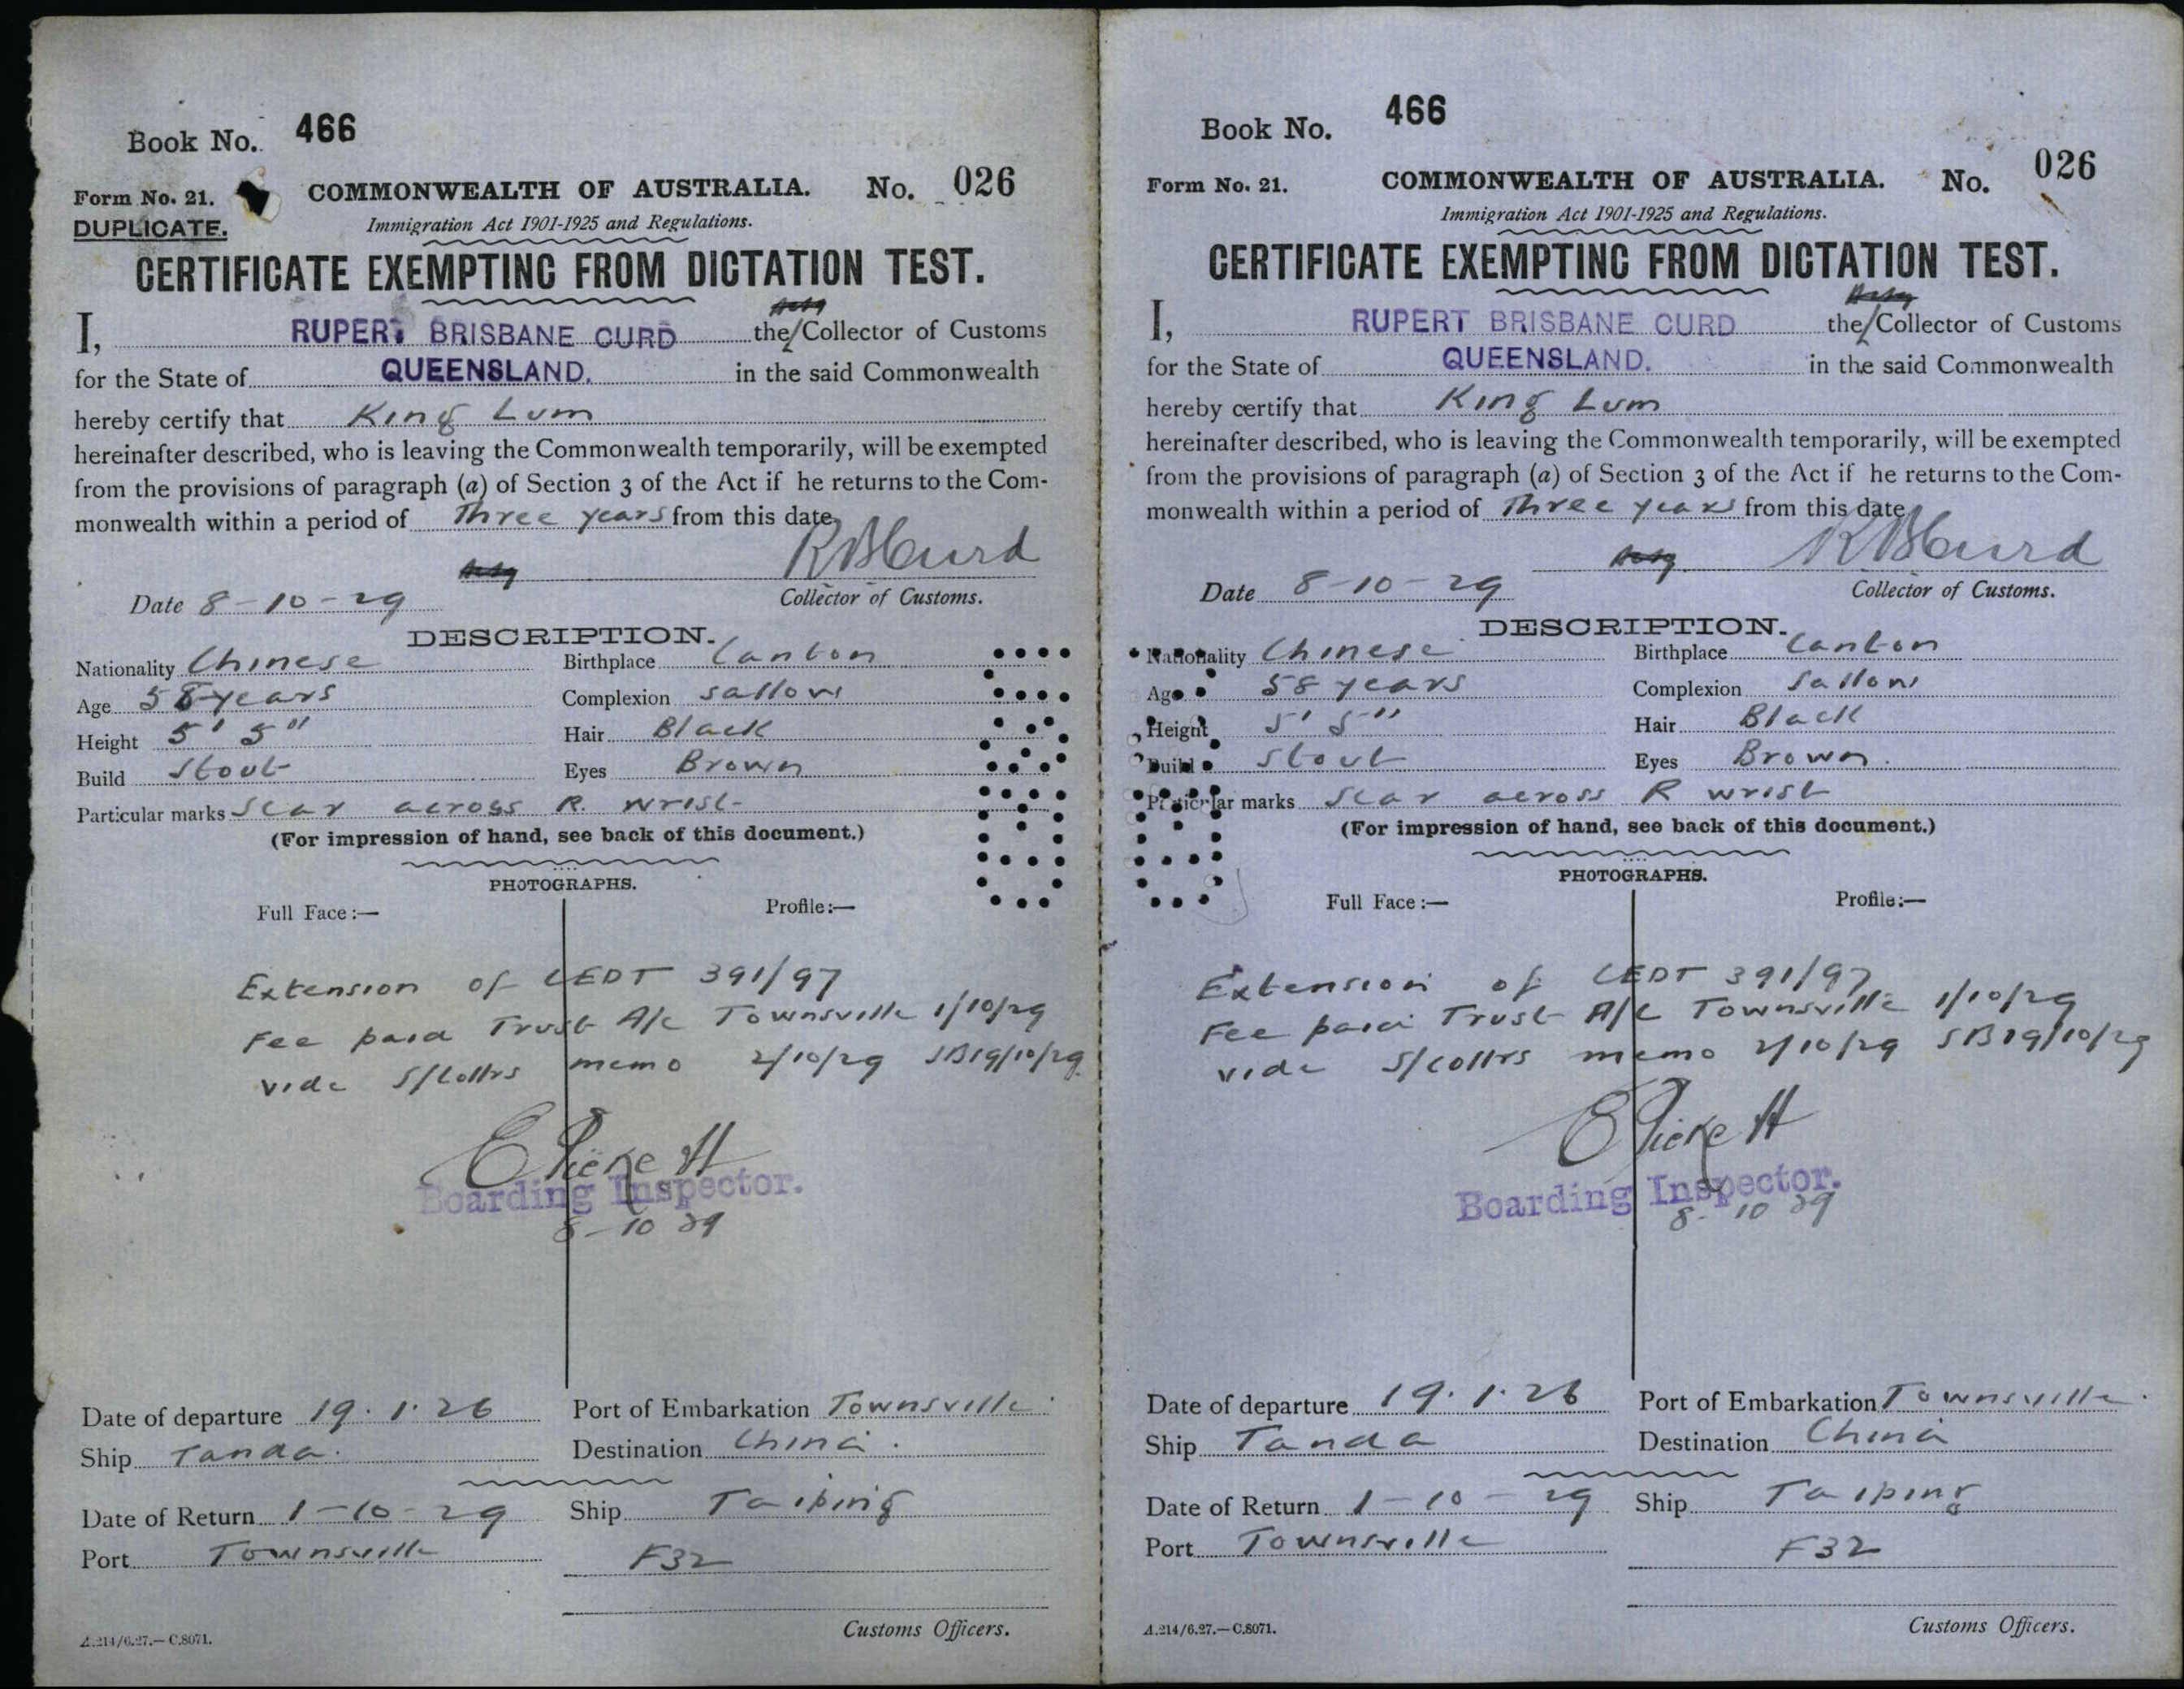 Book No. 466
Form No. 21. COMMONWEALTH OF AUSTRALIA. No. 026
DUPLICATE. Immigration Act 1901-1925 and Regulations.
CERTIFICATE EXEMPTING FROM DICTATION TEST.
I, RUPERT BRISBANE CURD the/Collector of Customs
for the State of QUEENSLAND. in the said Commonwealth
hereby certify that King Lum
hereinafter described, who is leaving the Commonwealth temporarily, will be exempted
from the provisions of paragraph (a) of Section 3 of the Act if he returns to the Com-
monwealth within a period of Three years from this date.
R B Curd
Date 8-10-29 Collector of Customs.
DESCRIPTION.
Nationality Chinese Birthplace Canton
Age 58 years Complexion sallow
Height 5' 5" Hair Black
Build Stout Eyes Brown
Particular marks Scar across R. wrist
(For impression of hand, see back of this document.)
PHOTOGRAPHS.
Full Face:— Profile:—
Extension of CEDT 391/97
Fee paid Trust A/c Townsville 1/10/29
vide S/Collrs memo 2/10/29 SB19/10/29
Boarding Inspector.
8-10 29
Date of departure 19.1.26 Port of Embarkation Townsville.
Ship Tanda. Destination China.
Date of Return 1-10-29 Ship Taiping
Port Townsville F32
Customs Officers.
A.214/6.27.—C.8071.
Book No. 466
Form No. 21. COMMONWEALTH OF AUSTRALIA. No. 026
Immigration Act 1901-1925 and Regulations.
CERTIFICATE EXEMPTING FROM DICTATION TEST.
I, RUPERT BRISBANE CURD the/Collector of Customs
for the State of QUEENSLAND. in the said Commonwealth
hereby certify that King Lum
hereinafter described, who is leaving the Commonwealth temporarily, will be exempted
from the provisions of paragraph (a) of Section 3 of the Act if he returns to the Com-
monwealth within a period of Three years from this date
R B Curd
Date 8-10-29 Collector of Customs.
DESCRIPTION.
Nationality Chinese Birthplace Canton
Age 58 years Complexion Sallow
Height 5' 5" Hair Black
Build Stout Eyes Brown.
Particular marks Scar across R wrist
(For impression of hand, see back of this document.)
PHOTOGRAPHS.
Full Face:— Profile:—
Extension of CEDT 391/97
Fee paid Trust A/C Townsville 1/10/29
vide S/Collrs memo 2/10/29 SB19/10/29
Boarding Inspector.
8-10 29
Date of departure 19.1.26 Port of Embarkation Townsville.
Ship Tanda Destination China
Date of Return 1-10-29 Ship Taiping
Port Townsville F32
Customs Officers.
A.214/6.27.—C.8071.